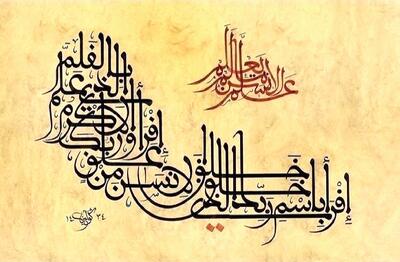 إقرأ بأسم ربك الذي خلق خلق الانسان من علق
إقرأ وربك الاكرم الذي علم بالقلم
علم الانسان مالم يعلم
١٤ ٣٤